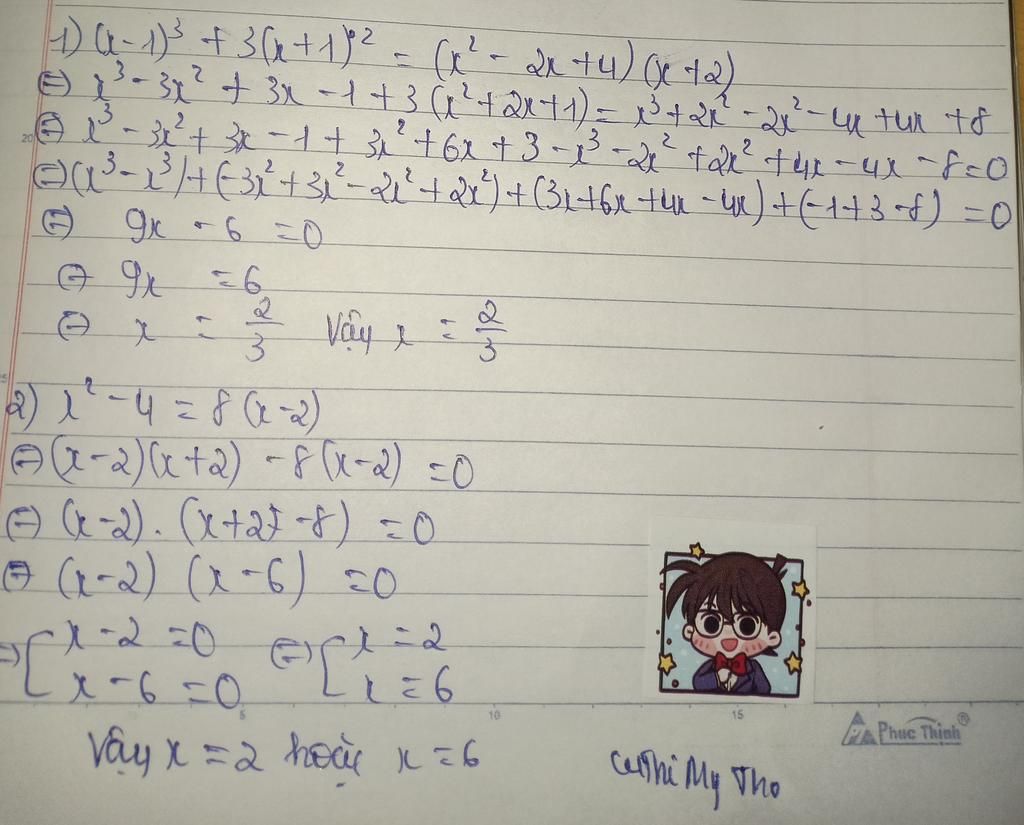 1) (x-1)³ + 3(x+1)² = (x² - 2x+4) (x+2)
⇔ x³ - 3x² + 3x - 1 + 3 (x²+2x+1) = x³+2x² - 2x² - 4x + 4x + 8
20
⇔ x³ - 3x² + 3x - 1 + 3x² + 6x + 3 - x³ - 2x² + 2x² + 4x - 4x - 8 = 0
⇔ (x³ - x³) + (-3x² + 3x² - 2x² + 2x²) + (3x+6x+4x-4x) + (-1+3-8) = 0
⇔ 9x - 6 = 0
⇔ 9x = 6
⇔ x = 2/3 Vậy x = 2/3
2) x² - 4 = 8 (x-2)
⇔ (x-2)(x+2) - 8(x-2) = 0
⇔ (x-2) . (x+2 - 8) = 0
⇔ (x-2) (x-6) = 0
⇔ [ x-2 = 0 ⇔ [ x = 2
x-6 = 0 x = 6
5 10 15
Phuc Thinh®
Vậy x = 2 hoặc x = 6
Thi My Tho